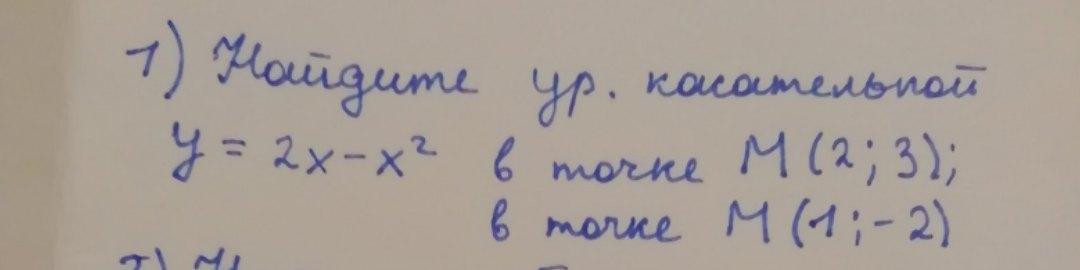 1) Найдите ур. касательной
y = 2x - x²  в точке M (2; 3);
в точке M (1; -2)